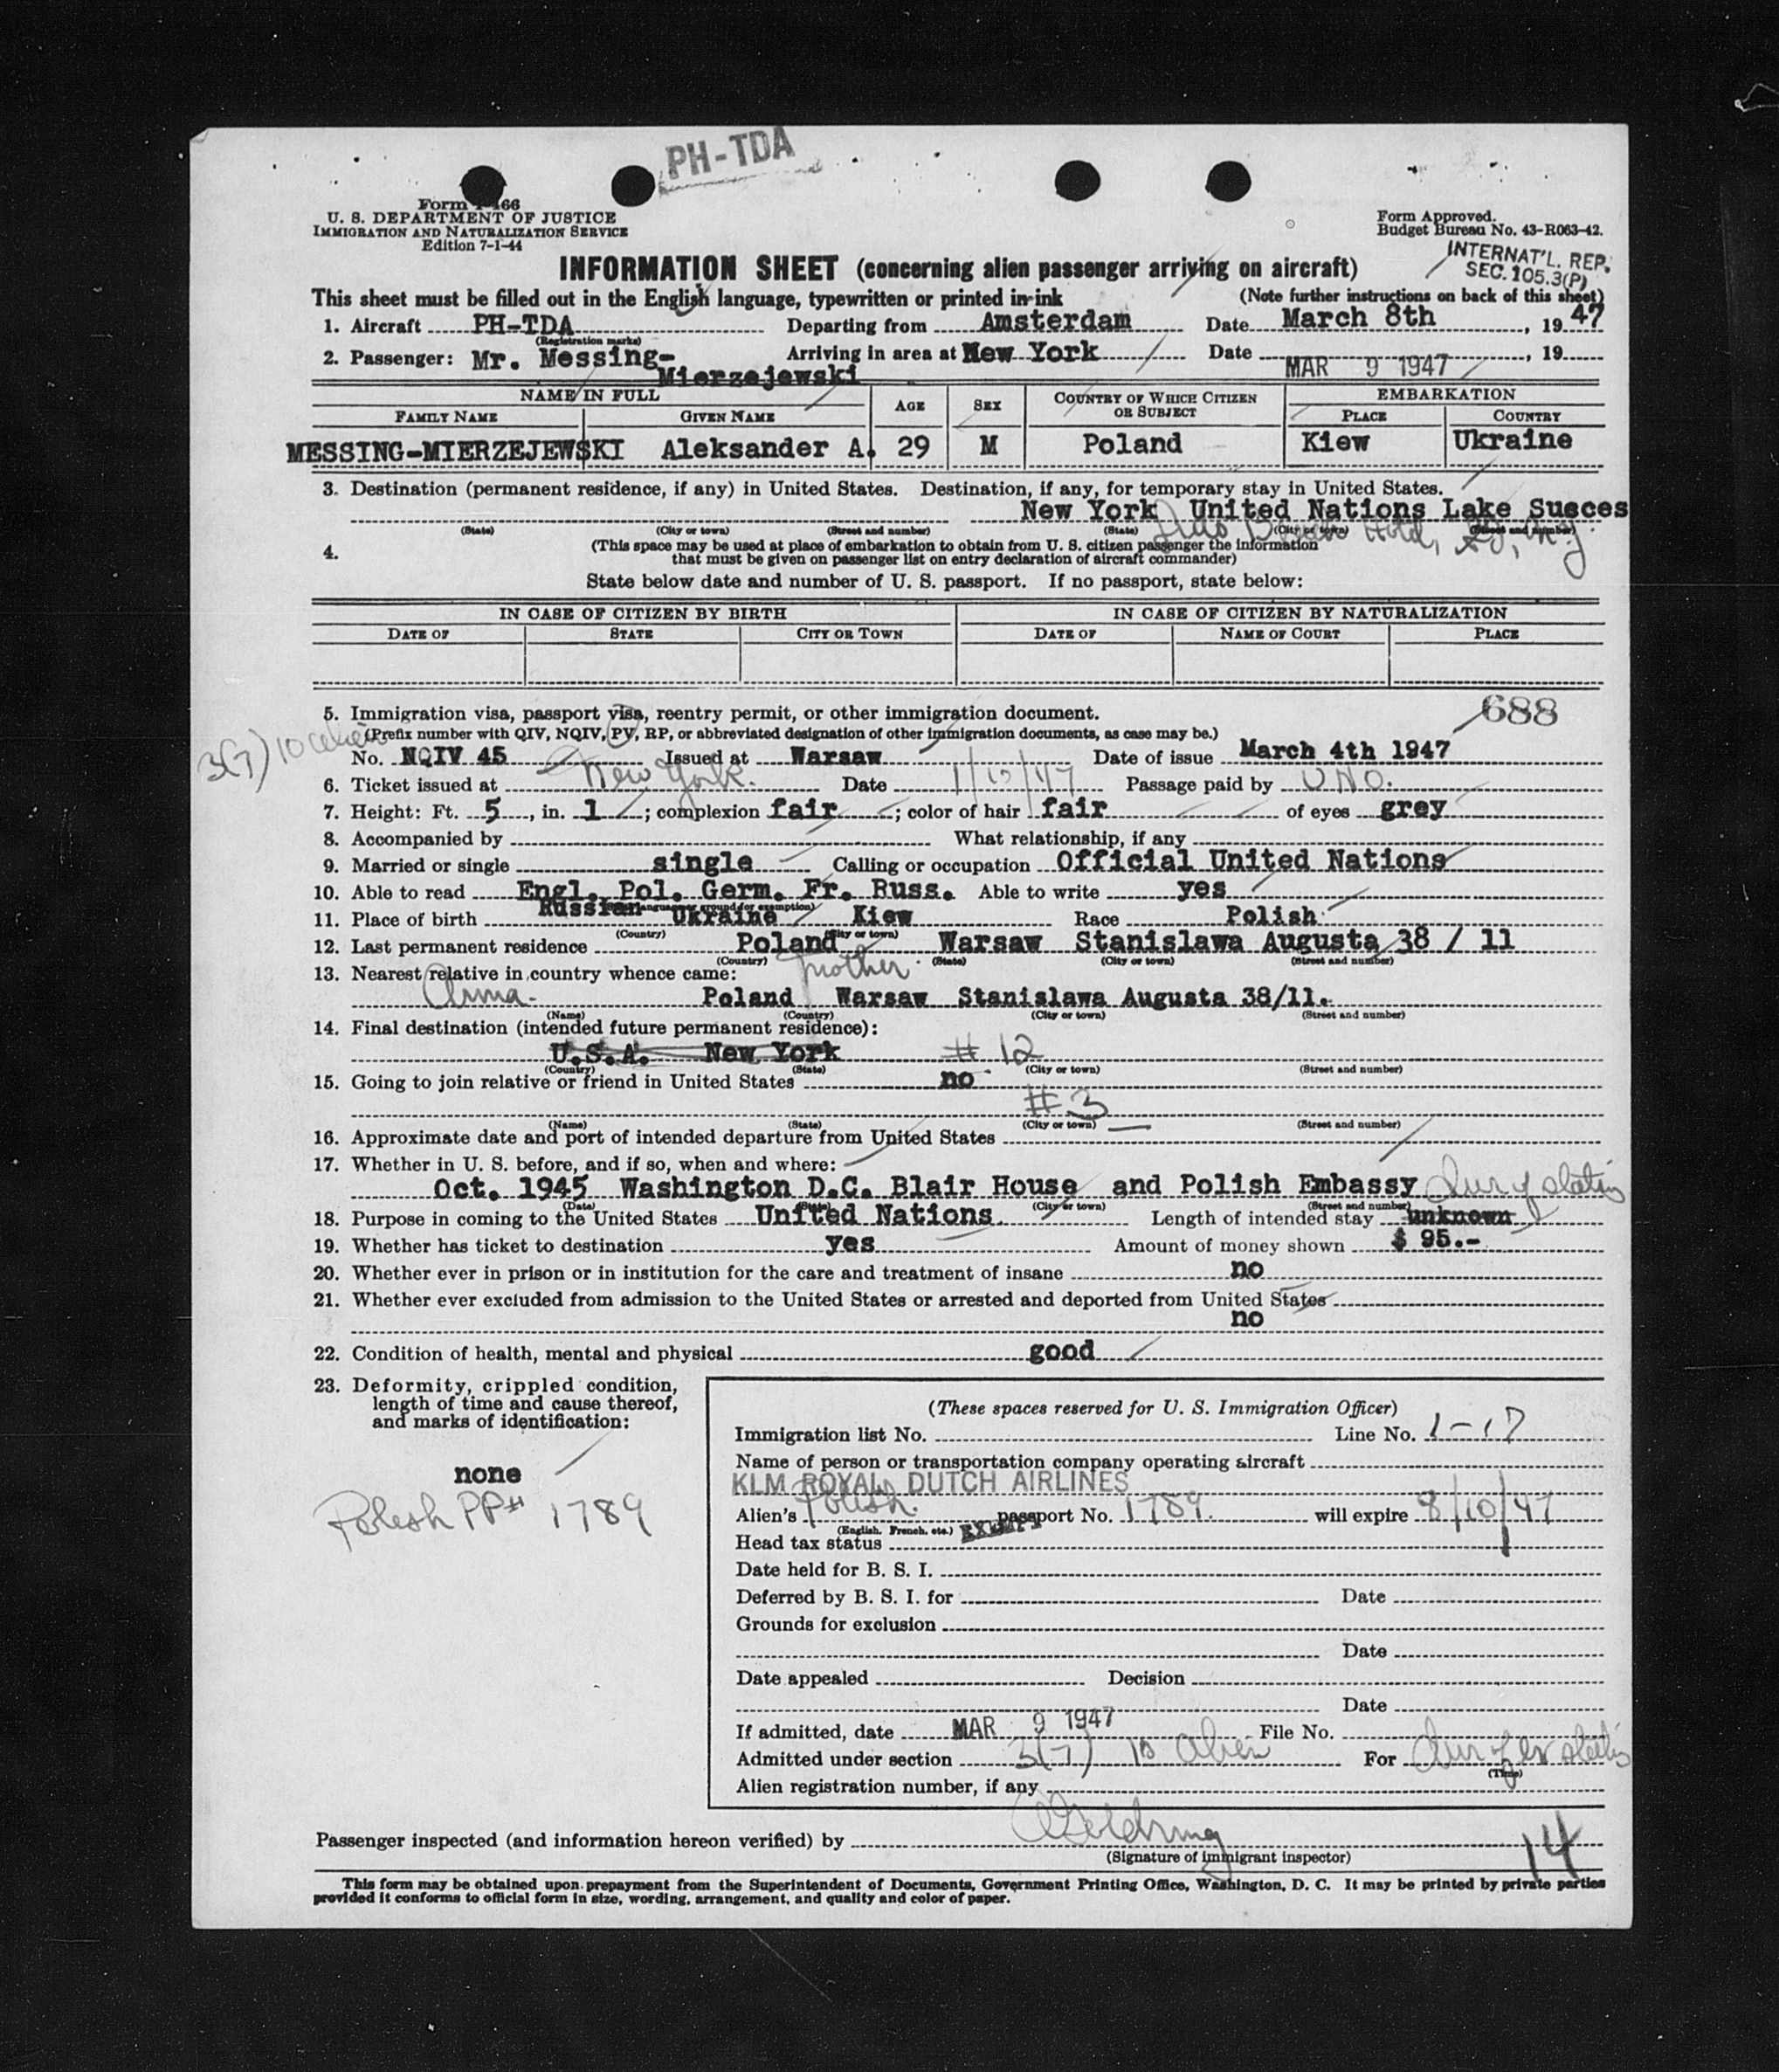 PH-TDA
Form I-466
U. S. DEPARTMENT OF JUSTICE
IMMIGRATION AND NATURALIZATION SERVICE
Edition 7-1-44
Form Approved.
Budget Bureau No. 43-R063-42.
INTERNAT'L. REP.
SEC. 105.3(P)
INFORMATION SHEET (concerning alien passenger arriving on aircraft)
This sheet must be filled out in the English language, typewritten or printed in ink (Note further instructions on back of this sheet)
1. Aircraft PH-TDA Departing from Amsterdam Date March 8th, 1947
(Registration marks)
2. Passenger: Mr. Messing- Arriving in area at New York Date MAR 9 1947, 19
Mierzejewski
NAME IN FULL AGE SEX COUNTRY OF WHICH CITIZEN OR SUBJECT EMBARKATION
FAMILY NAME GIVEN NAME PLACE COUNTRY
MESSING-MIERZEJEWSKI Aleksander A. 29 M Poland Kiew Ukraine
3. Destination (permanent residence, if any) in United States. Destination, if any, for temporary stay in United States.
New York United Nations Lake Susces
(State) (City or town) (Street and number) (State) (City or town) (Street and number)
Hotel,
4. (This space may be used at place of embarkation to obtain from U. S. citizen passenger the information
that must be given on passenger list on entry declaration of aircraft commander)
State below date and number of U. S. passport. If no passport, state below:
IN CASE OF CITIZEN BY BIRTH IN CASE OF CITIZEN BY NATURALIZATION
DATE OF STATE CITY OR TOWN DATE OF NAME OF COURT PLACE
688
5. Immigration visa, passport visa, reentry permit, or other immigration document.
(Prefix number with QIV, NQIV, PV, RP, or abbreviated designation of other immigration documents, as case may be.)
3(7) 10 alien
No. NQIV 45 Issued at Warsaw Date of issue March 4th 1947
6. Ticket issued at New York. Date 1/10/47 Passage paid by UNO.
7. Height: Ft. 5, in. 1; complexion fair; color of hair fair of eyes grey
8. Accompanied by What relationship, if any
9. Married or single single Calling or occupation Official United Nations
10. Able to read Engl. Pol. Germ. Fr. Russ. Able to write yes
11. Place of birth Russian Ukraine Kiew Race Polish
(Country) (City or town)
12. Last permanent residence Poland Warsaw Stanislawa Augusta 38 / 11
(Country) (State) (City or town) (Street and number)
13. Nearest relative in country whence came: mother
Anna Poland Warsaw Stanislawa Augusta 38/11.
(Name) (Country) (City or town) (Street and number)
14. Final destination (intended future permanent residence):
U.S.A. New York # 12
(Country) (State) (City or town) (Street and number)
15. Going to join relative or friend in United States no
#3
(Name) (State) (City or town) (Street and number)
16. Approximate date and port of intended departure from United States
17. Whether in U. S. before, and if so, when and where:
Oct. 1945 Washington D.C. Blair House and Polish Embassy Dur of status
(Date) (State) (City or town) (Street and number)
18. Purpose in coming to the United States United Nations. Length of intended stay unknown
19. Whether has ticket to destination yes Amount of money shown $ 95.-
20. Whether ever in prison or in institution for the care and treatment of insane no
21. Whether ever excluded from admission to the United States or arrested and deported from United States
no
22. Condition of health, mental and physical good
23. Deformity, crippled condition,
length of time and cause thereof,
and marks of identification:
none
Polish PP# 1789
(These spaces reserved for U. S. Immigration Officer)
Immigration list No. Line No. 1-17
Name of person or transportation company operating aircraft
KLM ROYAL DUTCH AIRLINES
Alien's Polish. passport No. 1789. will expire 8/10/47
(English, French, etc.)
Head tax status EXEMPT
Date held for B. S. I.
Deferred by B. S. I. for Date
Grounds for exclusion
Date
Date appealed Decision
Date
If admitted, date MAR 9 1947 File No.
Admitted under section 3(7) 10 alien For Dur of status
(Time)
Alien registration number, if any
Passenger inspected (and information hereon verified) by
(Signature of immigrant inspector)
14
This form may be obtained upon prepayment from the Superintendent of Documents, Government Printing Office, Washington, D. C. It may be printed by private parties
provided it conforms to official form in size, wording, arrangement, and quality and color of paper.